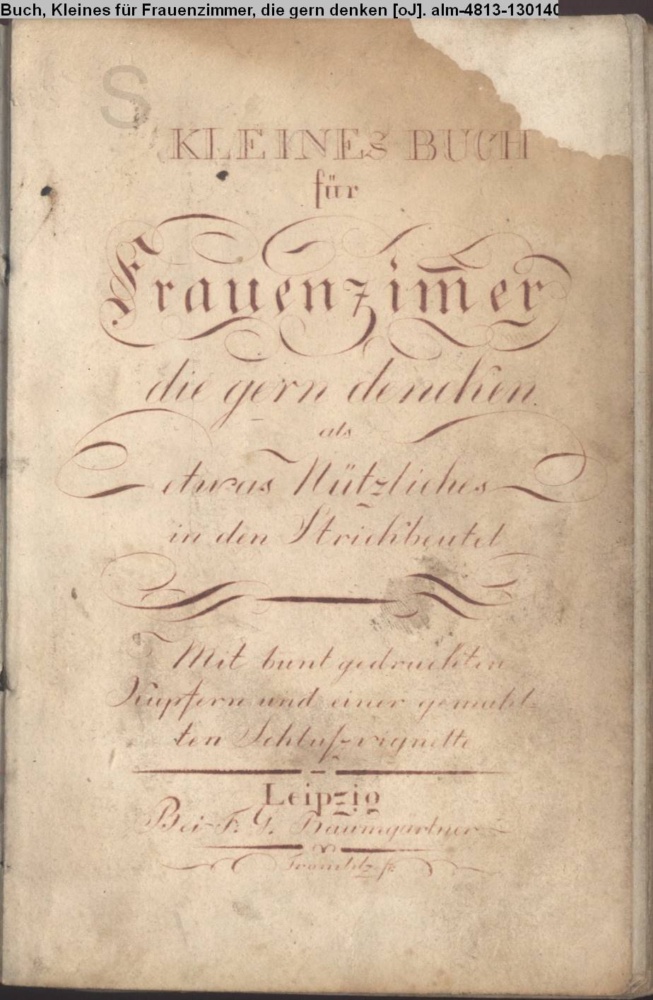 Buch, Kleines für Frauenzimmer, die gern denken [oJ]. alm-4813-130140
S
KLEINES BUCH
für
Frauenzim̅er
die gern dencken.
als
etwas Nützliches
in den Strickbeutel
Mit bunt gedruckten
Kupfern und einer gemahl-
ten Schluſs-vignette
Leipzig
Bei F. G. Baumgärtner